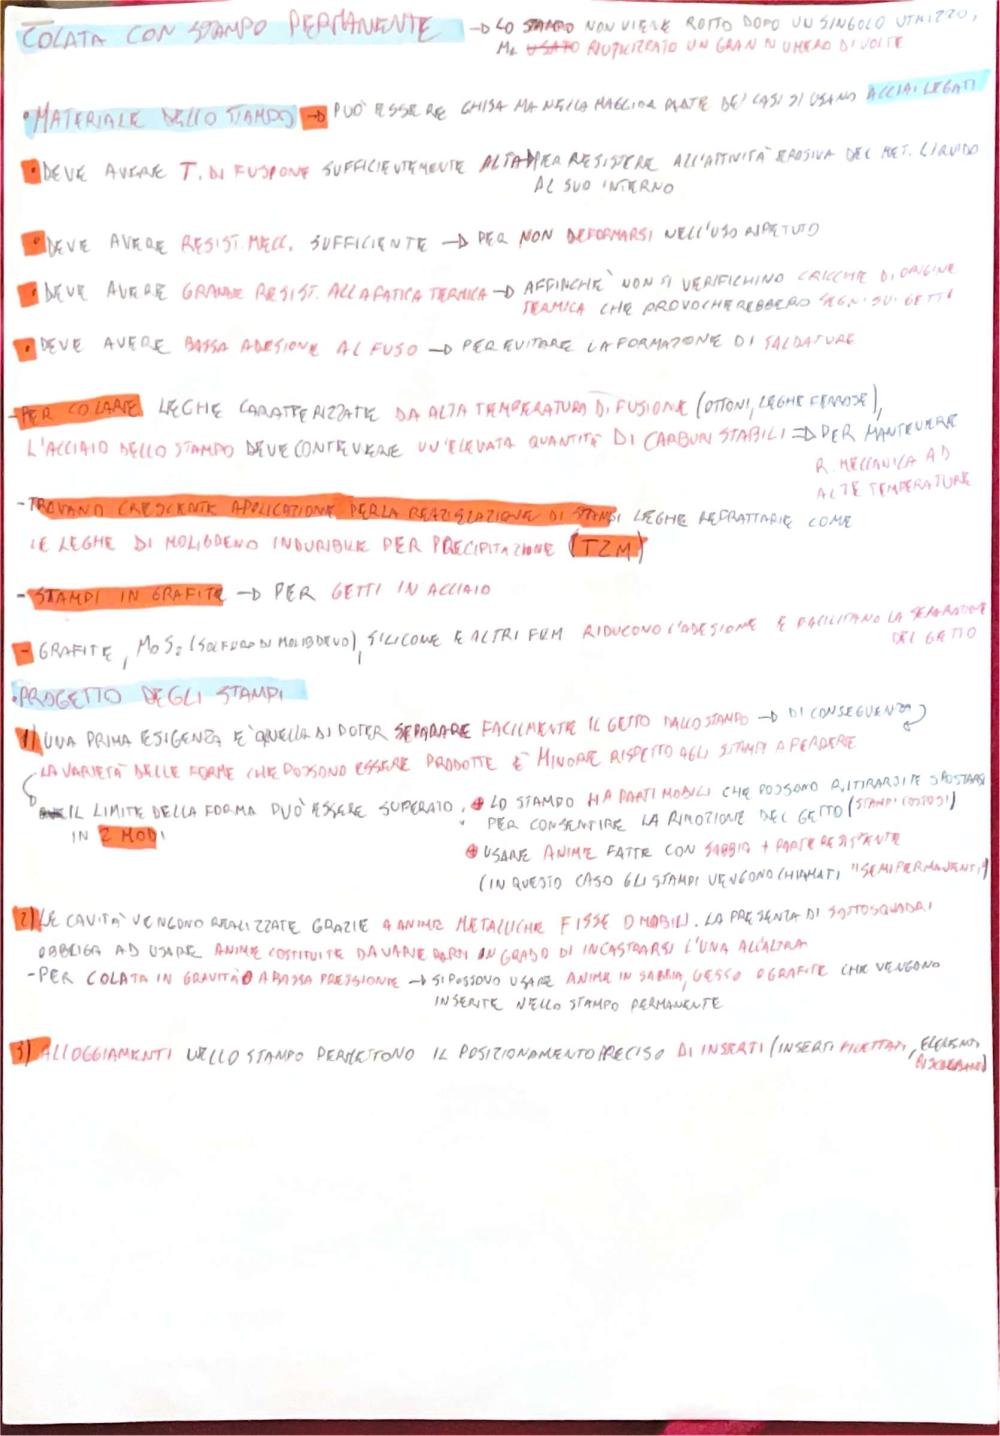 COLATA CON STAMPO PERMANENTE → LO STAMPO NON VIENE ROTTO DOPO UN SINGOLO UTILIZZO,
MA USATO RIUTILIZZATO UN GRAN NUMERO DI VOLTE
• MATERIALE DELLO STAMPO → PUÒ ESSERE GHISA MA NELLA MAGGIOR PARTE DEI CASI SI USANO ACCIAI LEGATI
• DEVE AVERE T. DI FUSIONE SUFFICIENTEMENTE ALTA → PER RESISTERE ALL'ATTIVITÀ EROSIVA DEL MET. LIQUIDO
AL SUO INTERNO
• DEVE AVERE RESIST. MECC. SUFFICIENTE → PER NON DEFORMARSI NELL'USO RIPETUTO
• DEVE AVERE GRANDE RESIST. ALLA FATICA TERMICA → AFFINCHÈ NON SI VERIFICHINO CRICCHE DI ORIGINE
TERMICA CHE PROVOCHEREBBERO SEGNI SUI GETTI
• DEVE AVERE BASSA ADESIONE AL FUSO → PER EVITARE LA FORMAZIONE DI SALDATURE
- PER COLARE LEGHE CARATTERIZZATE DA ALTA TEMPERATURA DI FUSIONE (OTTONI, LEGHE FERROSE),
L'ACCIAIO DELLO STAMPO DEVE CONTENERE UN'ELEVATA QUANTITÀ DI CARBURI STABILI ⇒ PER MANTENERE
R. MECCANICA AD
ALTE TEMPERATURE
- TROVANO CRESCENTE APPLICAZIONE PER LA REALIZZAZIONE DI STAMPI LEGHE REFRATTARIE COME
LE LEGHE DI MOLIBDENO INDURIBILI PER PRECIPITAZIONE (TZM)
- STAMPI IN GRAFITE → PER GETTI IN ACCIAIO
- GRAFITE, MoS₂ (SOLFURO DI MOLIBDENO), SILICONE E ALTRI FILM RIDUCONO L'ADESIONE E FACILITANO LA SEPARAZIONE
DEL GETTO
• PROGETTO DEGLI STAMPI
1) UNA PRIMA ESIGENZA È QUELLA DI POTER SEPARARE FACILMENTE IL GETTO DALLO STAMPO → DI CONSEGUENZA
LA VARIETÀ DELLE FORME CHE POSSONO ESSERE PRODOTTE È MINORE RISPETTO AGLI STAMPI A PERDERE
IL LIMITE DELLA FORMA PUÒ ESSERE SUPERATO : • LO STAMPO HA PARTI MOBILI CHE POSSONO RITIRARSI E SPOSTARSI
IN 2 MODI PER CONSENTIRE LA RIMOZIONE DEL GETTO (STAMPI COSTOSI)
• USARE ANIME FATTE CON SABBIA + PARTE RESISTENTE
(IN QUESTO CASO GLI STAMPI VENGONO CHIAMATI "SEMIPERMANENTI")
2) LE CAVITÀ VENGONO REALIZZATE GRAZIE A ANIME METALLICHE FISSE O MOBILI. LA PRESENZA DI SOTTOSQUADRI
OBBLIGA AD USARE ANIME COSTITUITE DA VARIE PARTI IN GRADO DI INCASTRARSI L'UNA ALL'ALTRA
- PER COLATA IN GRAVITÀ O A BASSA PRESSIONE → SI POSSONO USARE ANIME IN SABBIA, GESSO O GRAFITE CHE VENGONO
INSERITE NELLO STAMPO PERMANENTE
3) ALLOGGIAMENTI NELLO STAMPO PERMETTONO IL POSIZIONAMENTO PRECISO DI INSERTI (INSERTI FILETTATI, ELEMENTI